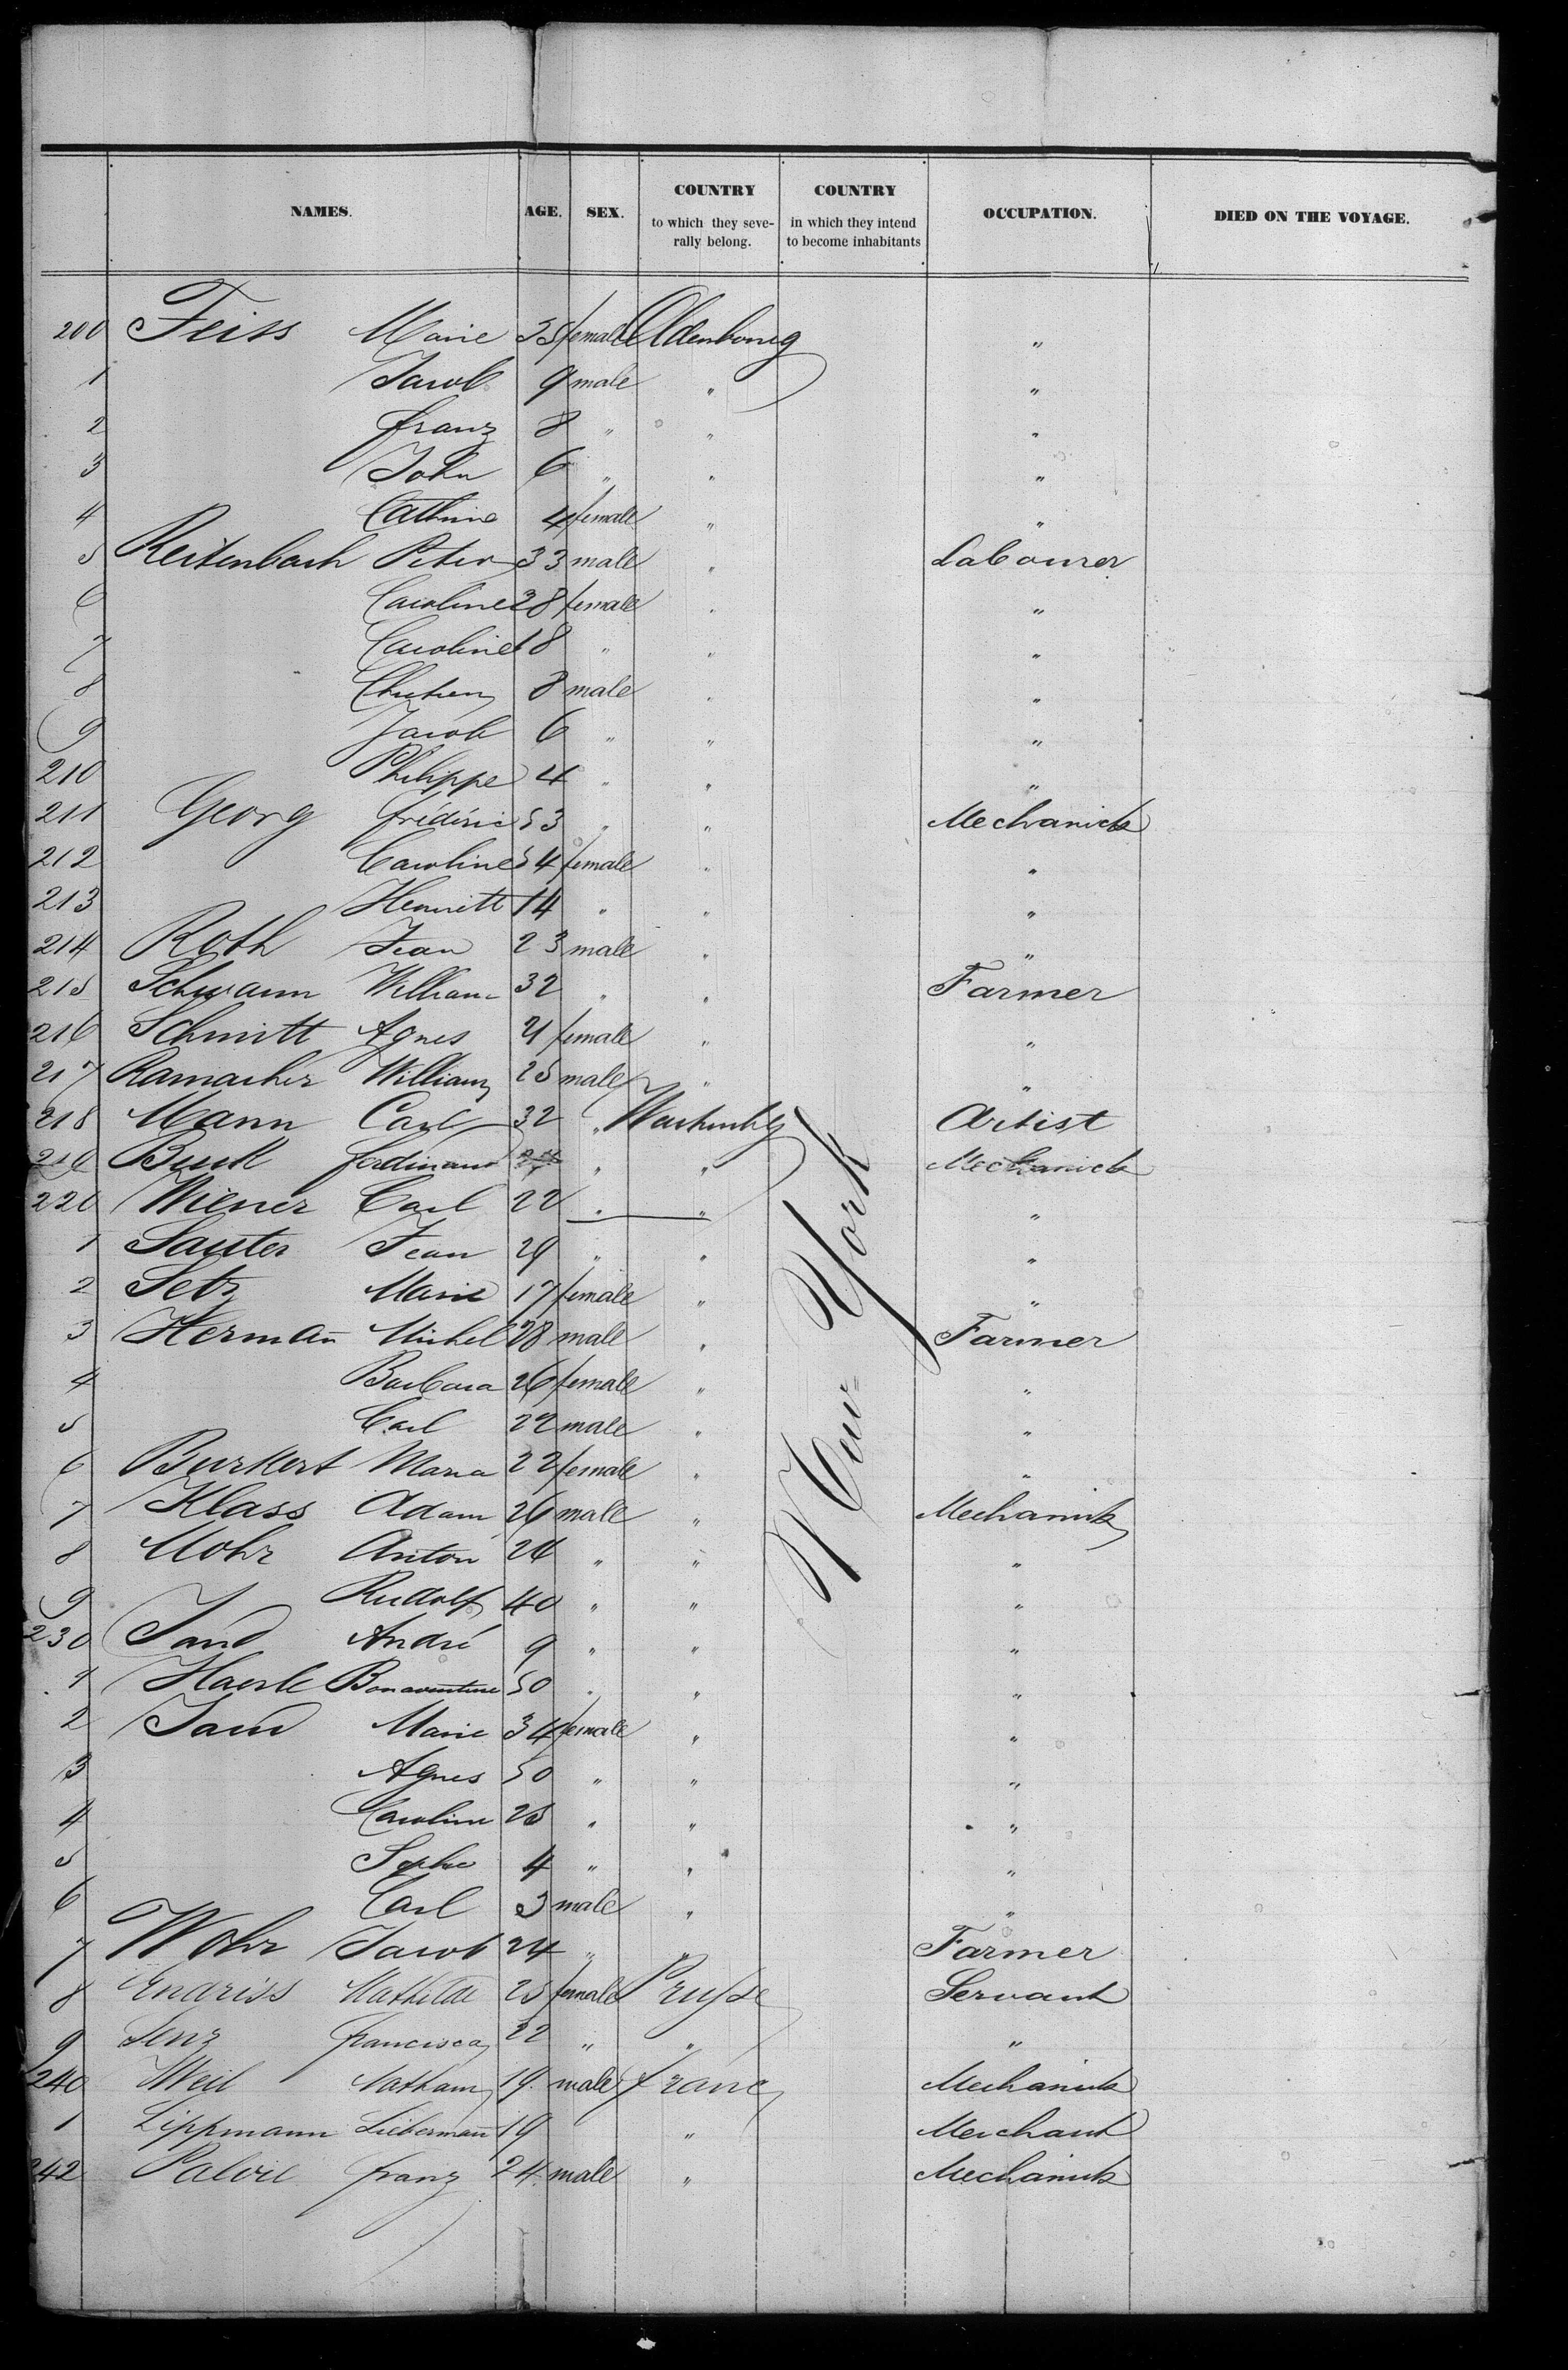 NAMES. AGE. SEX. COUNTRY to which they seve-rally belong. COUNTRY in which they intend to become inhabitants OCCUPATION. DIED ON THE VOYAGE.
200 Feiss Marie 35 female Oldenbourg "
1 Jacob 9 male " "
2 franz 8 " " "
3 John 6 " " "
4 Cathrine 4 female " "
5 Reitenbach Peter 33 male " Labourer
6 Caroline 28 female " "
7 Caroline 18 " " "
8 8 male " "
9 Jacob 6 " " "
210 Philippe 4 " " "
211 Georg frédéric 53 " " Mechanick
212 Caroline 54 female " "
213 Henriett 14 " " "
214 Roth Jean 23 male " "
215 Schwann William 32 " " Farmer
216 Schmitt Agnes 21 female " "
217 Ramacher William 25 male " "
218 Mann Carl 32 " Artist
219 ferdinand " " Mechanick
220 Wiener Carl 22 " " "
1 Sauter Jean 29 " " "
2 Setz Marie 17 female " "
3 Hermañ Michel 28 male " Farmer
4 Barbara 26 female " "
5 Carl 22 male " "
6 Burkert Maria 22 female " "
7 Klass Adam 26 male " Mechanick
8 Mohr Anton 26 " " "
9 Rudolf 40 " " "
230 André 9 " " "
1 Haerle Bonaventure 50 " " "
2 Marie 34 female " "
3 Agnes 50 " " "
4 Caroline 25 " " "
5 Sophie 4 " " "
6 Carl 3 male " "
7 Wohr Jacob 24 " " Farmer
8 Endriss Mathilde 25 female Prusse Servant
9 francisca 22 " " "
240 Weil Nathan 19 male france Mechanick
1 Lippmann Liebermañ 19 " Merchant
242 franz 24 male " Mechanick
New York